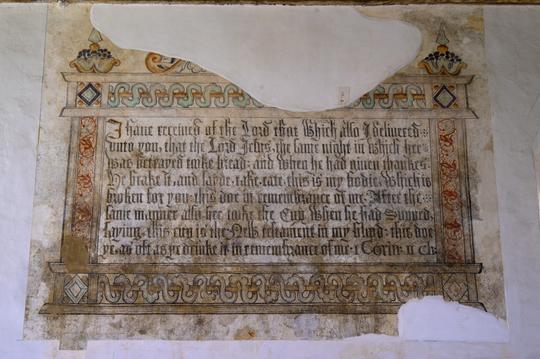 I haue receiued of the Lord that Which also I delivered
vnto you, that the Lord Jesus, the same night in which hee
was betrayed tooke bread: and when he had giuen thankes
He brake it, and sayde, take, eate, this is my bodie, Which is
broken for you: this doe in remembrance of me. After the
same maner also hee tooke the Cup, When he had Supped,
saying, this cup is the New testament in my blood: this doe
ye, as oft as ye drinke it in remembrance of me. 1 Corin 11 Ch